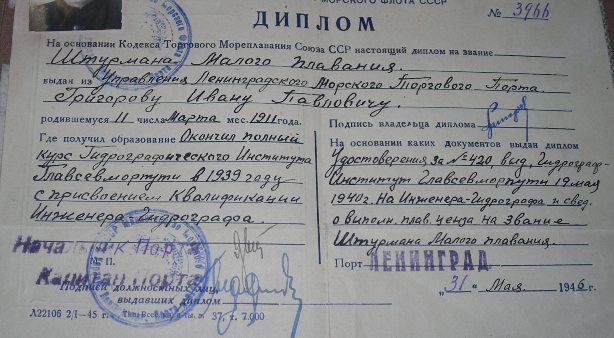 МОРСКОГО ФЛОТА СССР
ДИПЛОМ
№ 3966
На основании Кодекса Торгового Мореплавания Союза ССР настоящий диплом на звание
Штурмана Малого Плавания.
выдан из Управления Ленинградского Морского Торгового Порта
Григорову Ивану Павловичу.
родившемуся 11 числа Марта мес. 1911 года.
Где получил образование Окончил полный
курс Гидрографического Института
Главсевморпути в 1939 году
с присвоением Квалификации
Инженера-Гидрографа.
Начальник Порта
М. П.
Капитан Порта
Подписи должностных лиц,
выдавших диплом
Л22106 2/I—45 г. 37, т. 7.000
Подпись владельца диплома
На основании каких документов выдан диплом
Удостоверения за № 420 выд. Гидрограф-
Институт Главсевморпути 19 мая
1940 г. На Инженера-Гидрографа и свед.
о выполн. плав. ценза на Звание
Штурмана Малого плавания.
Порт ЛЕНИНГРАД
"31" Мая 1946 г.